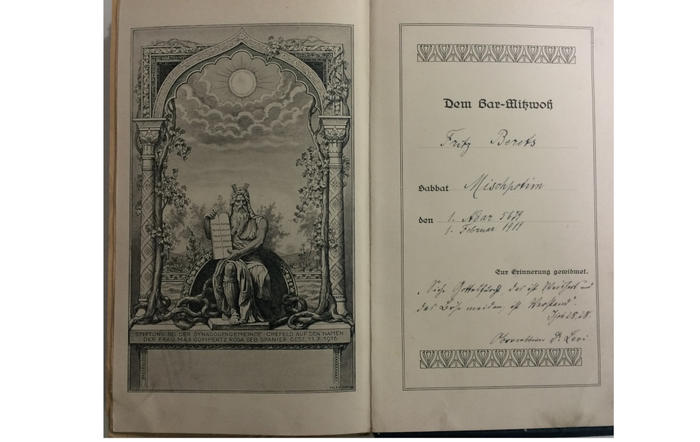 STIFTUNG BEI DER SYNAGOGENGEMEINDE CREFELD AUF DEN NAMEN
DER FRAU MAX GOMPERTZ ROSA GEB. SPANIER GEST. 11.7.1916
Dem Bar-Mitzwoh
Fritz Berets
Sabbat Mischpotim
den 1. Adar 5679
1. Februar 1919
Zur Erinnerung gewidmet.
„Siehe Gottesfurcht das ist Weisheit und
das Böse meiden, ist Verstand"
28.28.
Oberrabbiner Dr. Levi